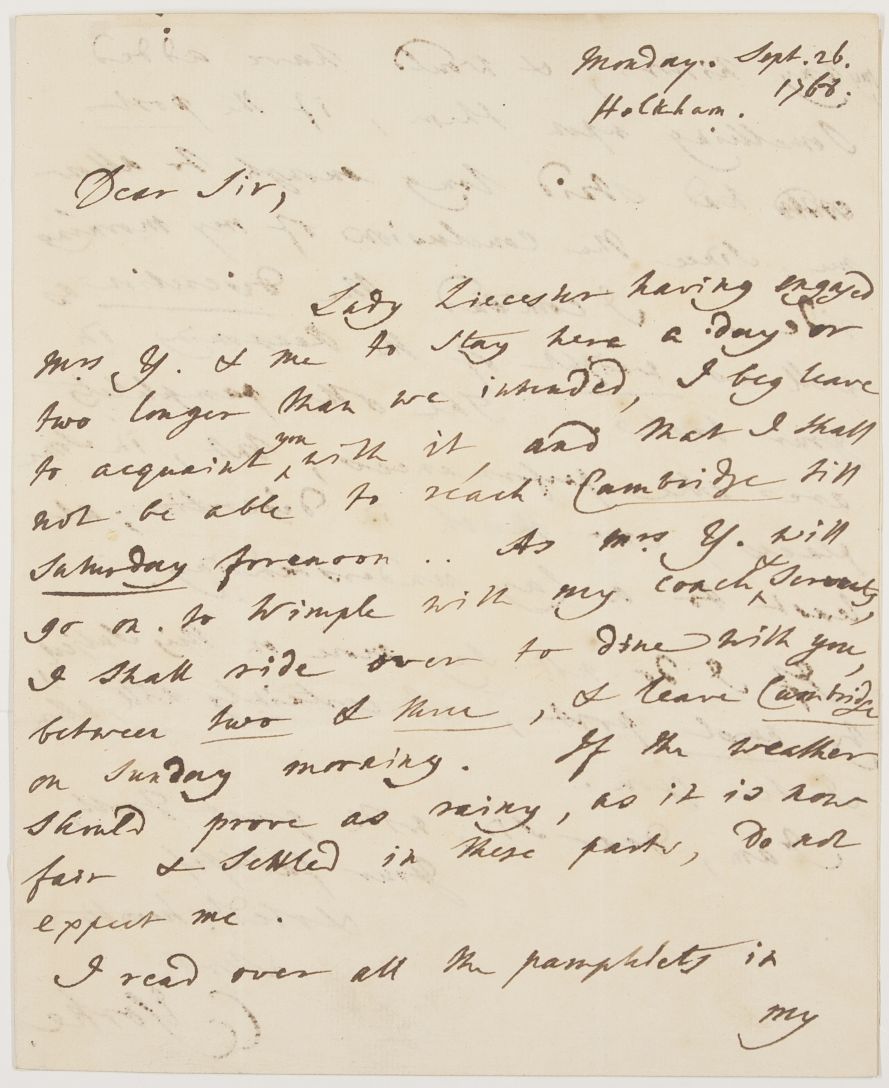 Monday. Sept. 26.
1768.
Holkham.
Dear Sir,
Lady Liecester having engaged
Mrs Y. & me to stay here a day or
two longer than we intended, I beg leave
to acquaint you with it, and that I shall
not be able to reach Cambridge till
Saturday forenoon .. As Mrs Y. will
go on to Wimple with my coach & Servants,
I shall ride over to dine with you,
between two & three, & leave Cambridge
on Sunday morning. If the weather
should prove as rainy, as it is now
fair & settled in these parts, do not
expect me.
I read over all the pamphlets in
my